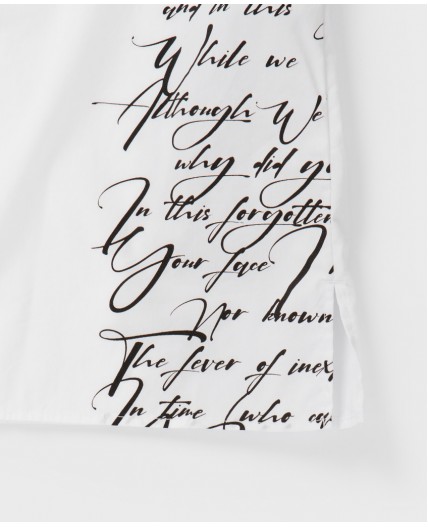 and in this
While we
Although We
why did yo
In this forgotten
Your face
Nor known
The fever of inex
In time (who ca